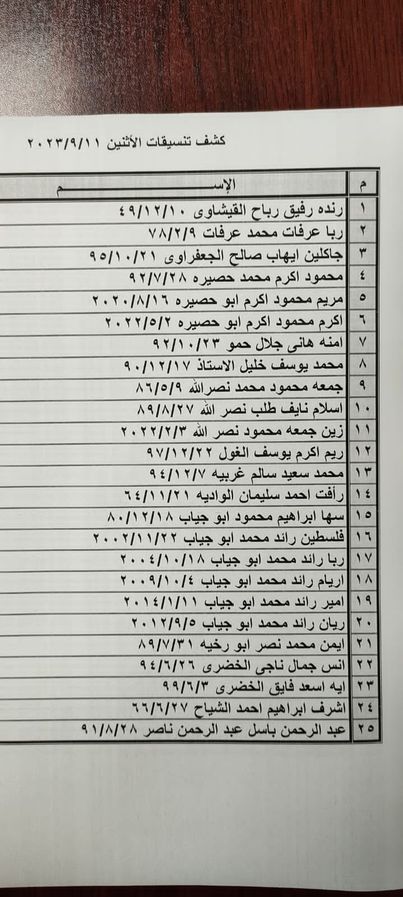 كشف تنسيقات الأثنين ٢٠٢٣/٩/١١
م الإســـــــم
١ رنده رفيق رباح القيشاوى ٤٩/١٢/١٠
٢ ربا عرفات محمد عرفات ٧٨/٢/٩
٣ جاكلين ايهاب صالح الجعفراوى ٩٥/١٠/٢١
٤ محمود اكرم محمد حصيره ٩٢/٧/٢٨
٥ مريم محمود اكرم ابو حصيره ٢٠٢٠/٨/١٦
٦ اكرم محمود اكرم ابو حصيره ٢٠٢٢/٥/٢
٧ امنه هانى جلال حمو ٩٢/١٠/٢٣
٨ محمد يوسف خليل الاستاذ ٩٠/١٢/١٧
٩ جمعه محمود محمد نصرالله ٨٦/٥/٩
١٠ اسلام نايف طلب نصر الله ٨٩/٨/٢٧
١١ زين جمعه محمود نصر الله ٢٠٢٢/٢/٣
١٢ ريم اكرم يوسف الغول ٩٧/١٢/٢٢
١٣ محمد سعيد سالم غربيه ٩٤/١٢/٧
١٤ رأفت احمد سليمان الواديه ٦٤/١١/٢١
١٥ سها ابراهيم محمود ابو جياب ٨٠/١٢/١٨
١٦ فلسطين رائد محمد ابو جياب ٢٠٠٢/١١/٢٢
١٧ ربا رائد محمد ابو جياب ٢٠٠٤/١٠/١٨
١٨ اريام رائد محمد ابو جياب ٢٠٠٩/١٠/٤
١٩ امير رائد محمد ابو جياب ٢٠١٤/١/١١
٢٠ ريان رائد محمد ابو جياب ٢٠١٢/٩/٥
٢١ ايمن محمد نصر ابو رخيه ٨٩/٧/٣١
٢٢ انس جمال ناجى الخضرى ٩٤/٦/٢٦
٢٣ ايه اسعد فايق الخضرى ٩٩/٦/٣
٢٤ اشرف ابراهيم احمد الشياح ٦٦/٦/٢٧
٢٥ عبد الرحمن باسل عبد الرحمن ناصر ٩١/٨/٢٨